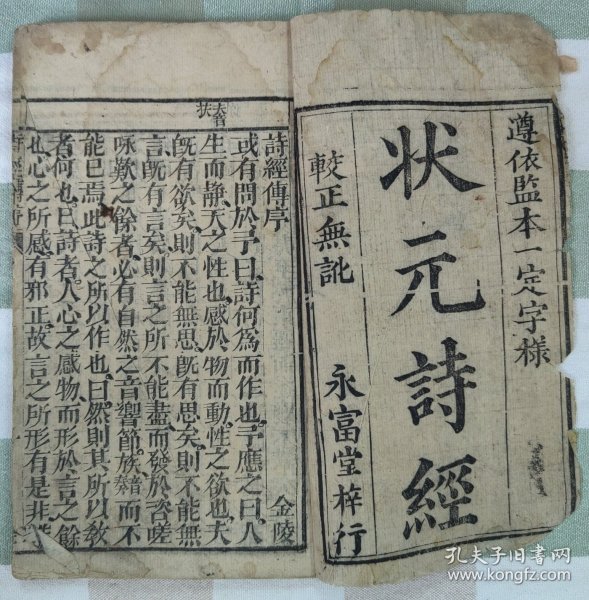 遵依監本一定字樣
狀元詩經
較正無訛
永富堂梓行
詩經傳序
金陵
或有問於予曰詩何爲而作也予應之曰人
生而静天之性也感於物而動性之欲也夫
既有欲矣則不能無思既有思矣則不能無
言既有言矣則言之所不能盡而發於咨嗟
咏歎之餘者必有自然之音響節族而不
能已焉此詩之所以作也曰然則其所以教
者何也曰詩者人心之感物而形於言之餘
也心之所感有邪正故言之所形有是非
孔夫子旧书网
www.kongfz.com